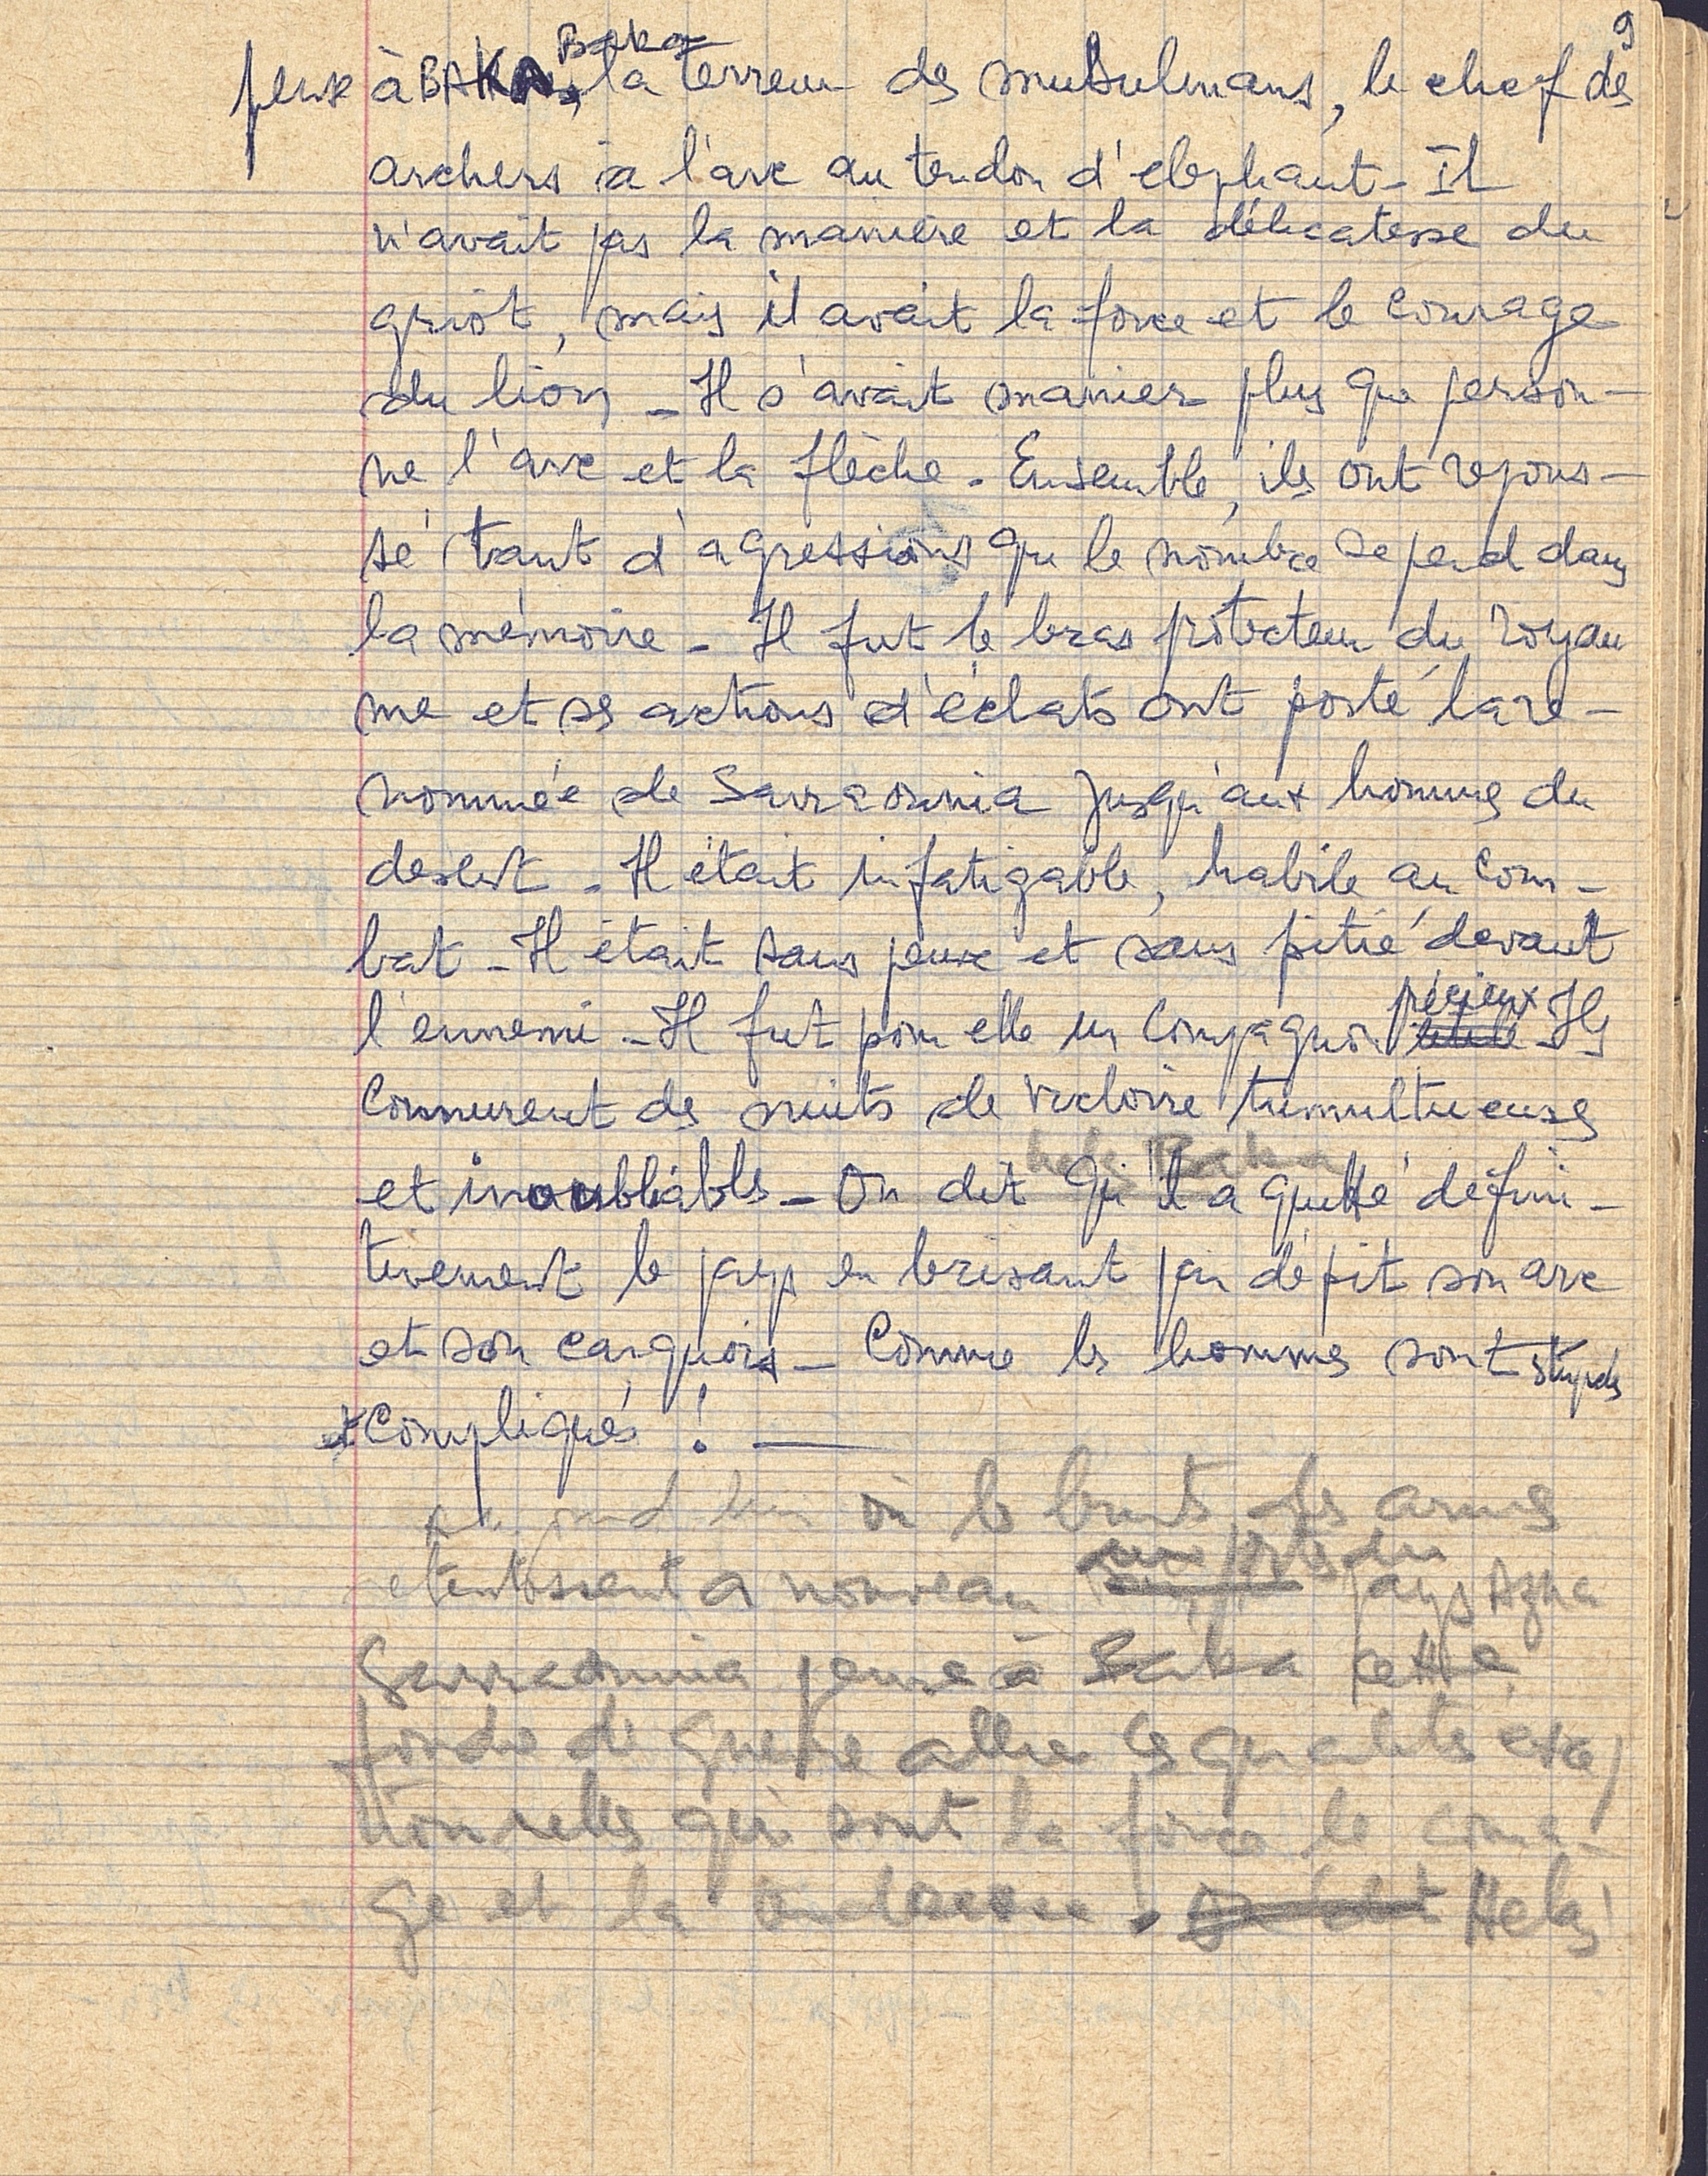 9
Baka
pense à BAKA, la terreur des musulmans, le chef des
archers à l'arc au tendon d'elephant - Il
n'avait pas la manière et la délicatesse du
griot, mais il avait la force et le courage
du lion - Il s'avait manier plus que person-
ne l'arc et la flèche - Ensemble, ils ont repous-
sé tant d'agressions que le nombre se perd dans
la mémoire - Il fut le bras protecteur du royau
me et ses actions d'éclats ont porté la re-
nommée de Sarraounia jusqu'aux hommes du
desert - Il était infatigable, habile au com-
bat - Il était sans peur et sans pitié devant
précieux
l'ennemi - Il fut pour elle un compagnon Ils
connurent des nuits de victoire tumultueuses
hélas Baka
et inoubliables - On dit qu'il a quitté défini-
tivement le pays en brisant par dépit son arc
et son carquois - Comme les hommes sont stupides
et Compliqués ! —
où le bruit des armes
aux portes du
retentissent à nouveau pays Azna
Sarraounia pense à Baka cette
foudre de guerre allie les qualités excep
tionnelles qui sont la force le coura-
ge et la tendresse. On dit Helas